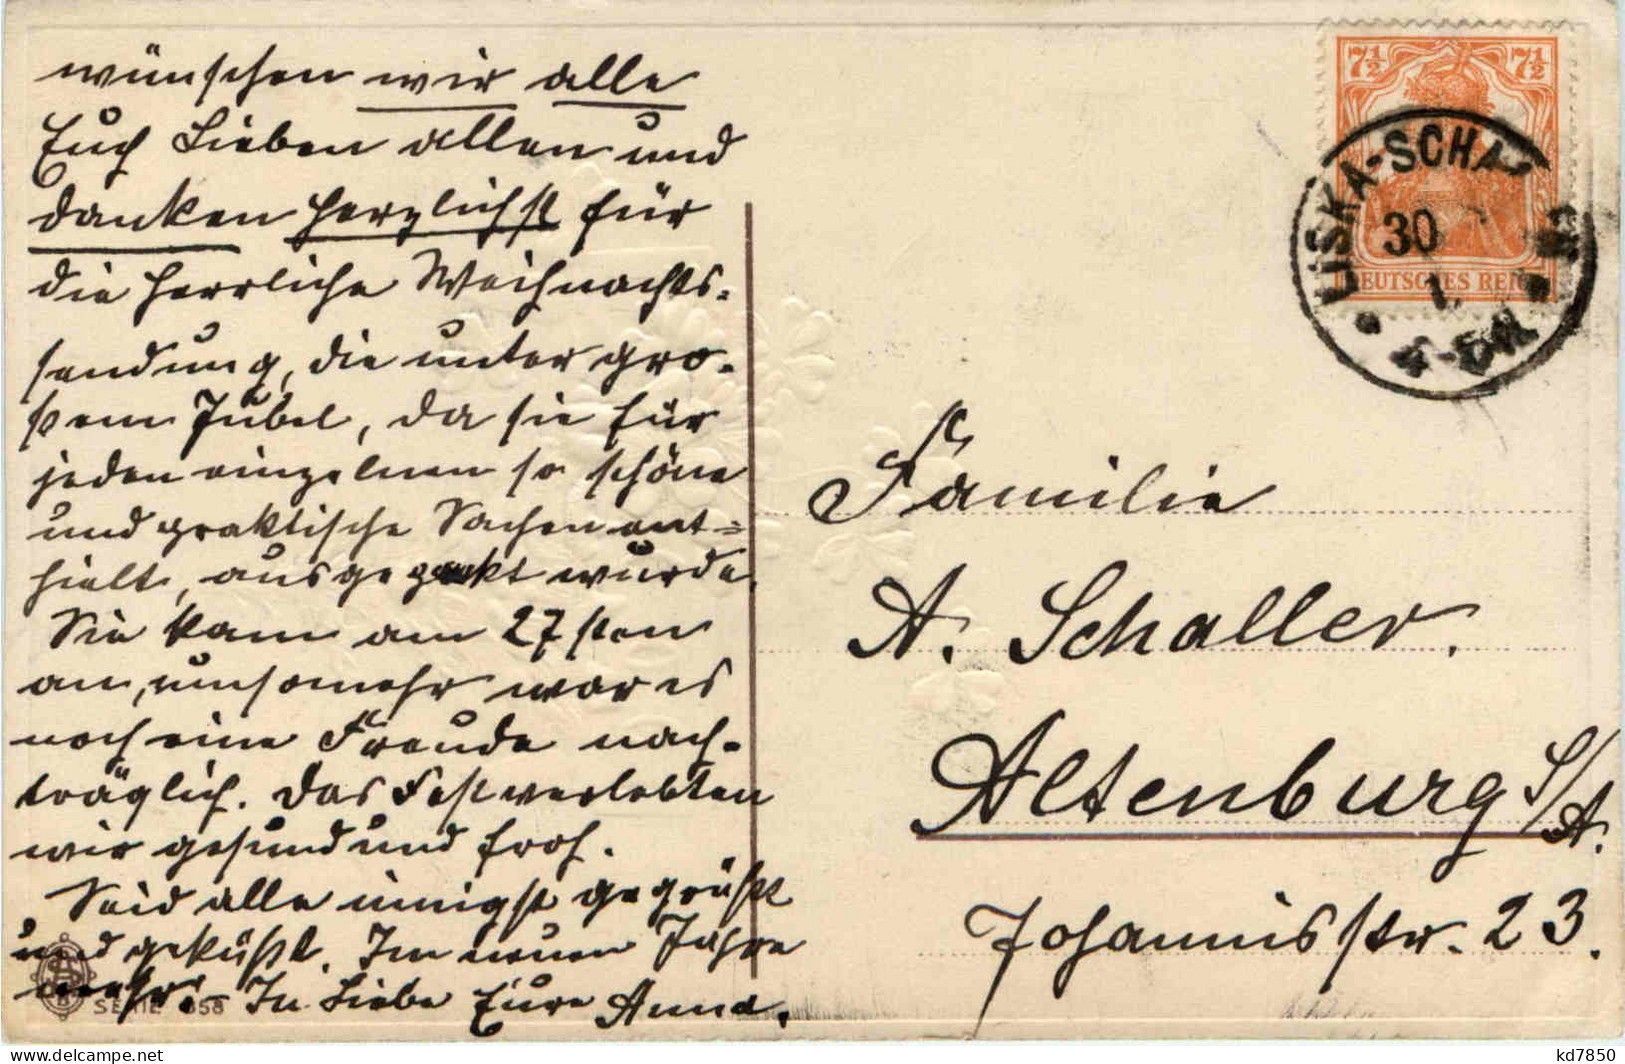 wünschen wir alle
Euch Lieben allen und
danken herzlichst für
die herrliche Weihnachts-
sendung, die unter gro-
ßem Jubel, da sie für
jeden einzelnen so schöne
und praktische Sachen ent=
hielt, ausgepackt wurde.
Sie kam am 27sten
an, umsomehr war es
noch eine Freude nach-
träglich. Das Fest verlebten
wir gesund und froh.
Seid alle innigst gegrüßt
und geküßt. Im neuen Jahre
mehr. – In Liebe Eure Anna.
SERIE 358
7½ 7½
DEUTSCHES REICH
LISKA-SCHA
30
1.
Familie
A. Schaller.
Altenburg S/A.
Johannisstr. 23.
kd7850